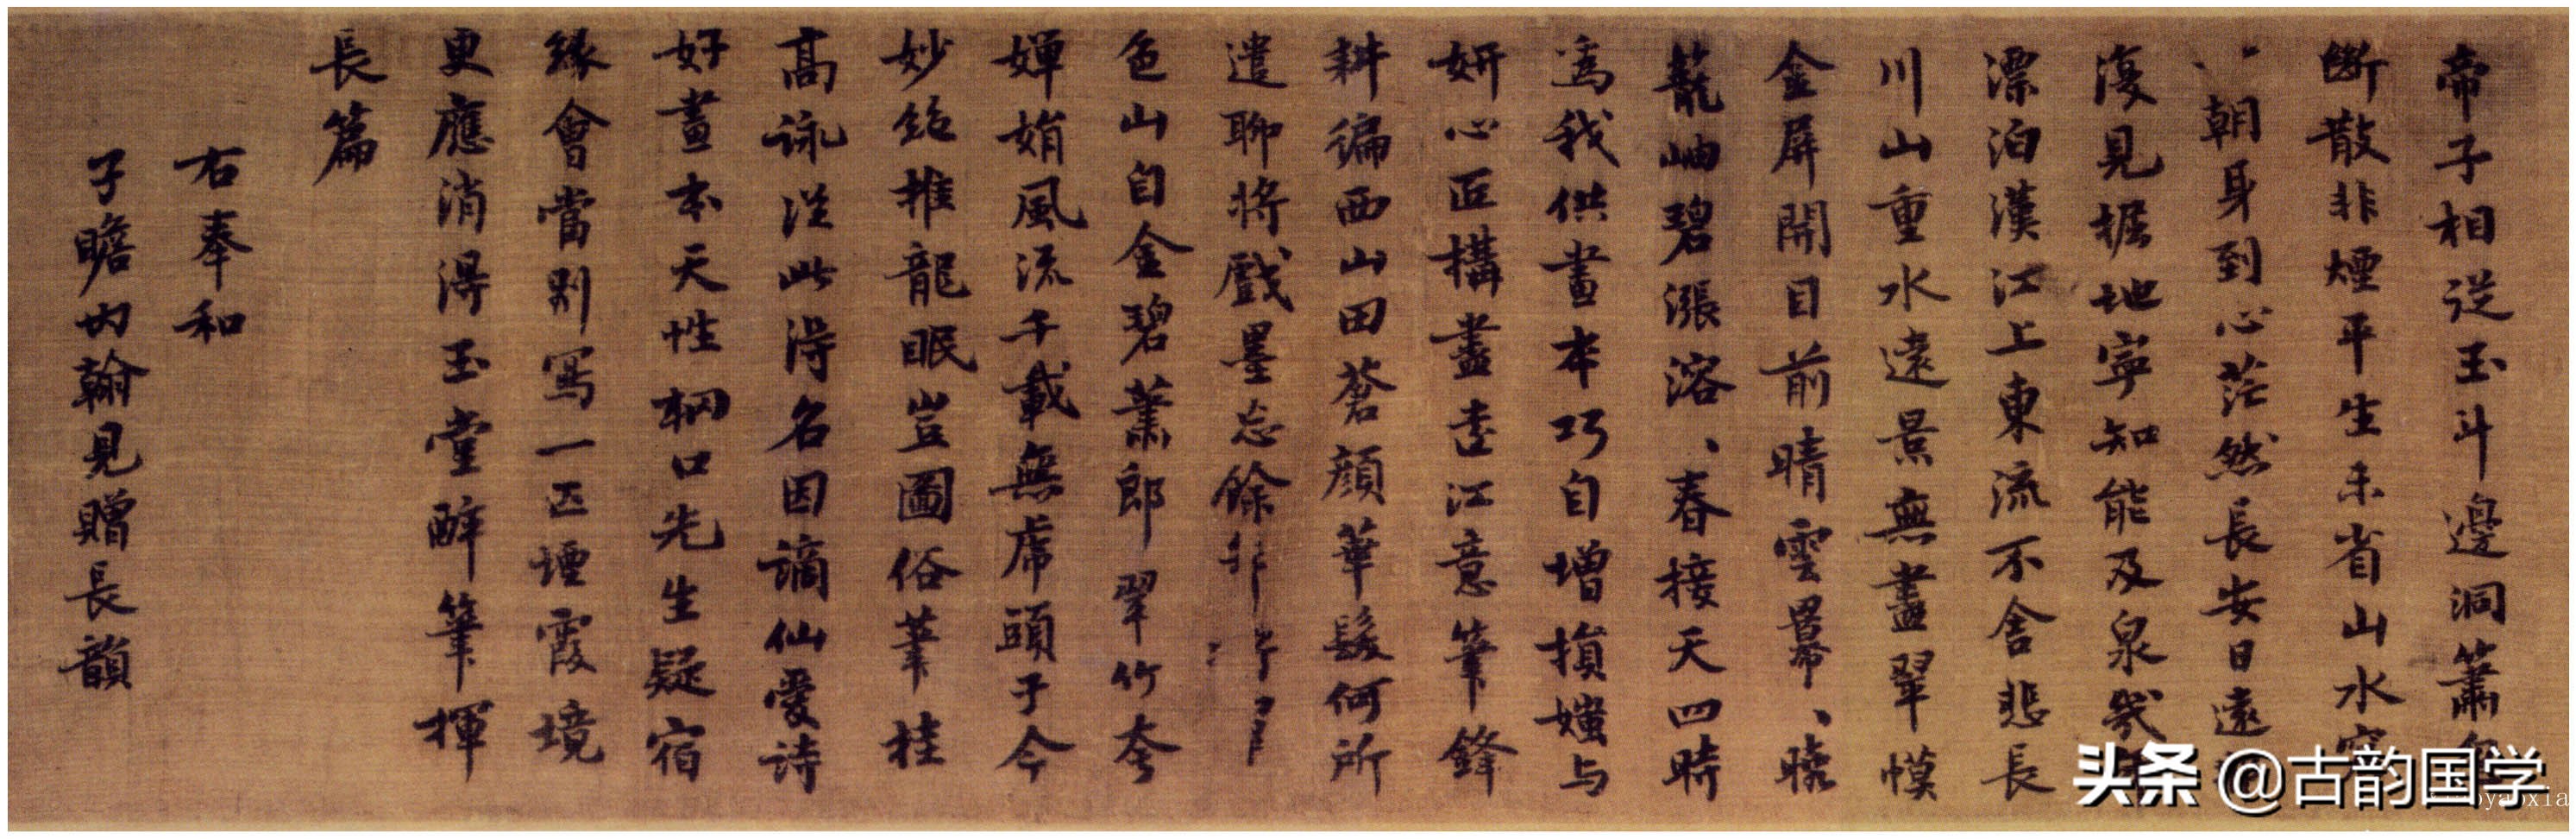 帝子相從玉斗邊洞簫
斷散非煙平生未省山水
朝身到心茫然長安日遠
復見掘地寧知能及泉
漂泊漢江上東流不舍悲長
川山重水遠景無盡翠幙
金屏開目前晴雲羃、曉
蘢岫碧漲溶、春接天四時
為我供畫本巧自增損媸与
妍心匠構盡遠江意筆鋒
耕徧西山田蒼顏華髮何所
遣聊將戲墨忘餘
色山自金碧蕭郎翠竹夸
嬋娟風流千載無虎頭于今
妙絶推龍眠豈圖俗筆挂
高詠從此得名因謫仙愛詩
好畫本天性輞口先生疑宿
緣會當別寫一匹煙霞境
更應消得玉堂醉筆揮
長篇
右奉和
子瞻內翰見贈長韻
头条 @古韵国学